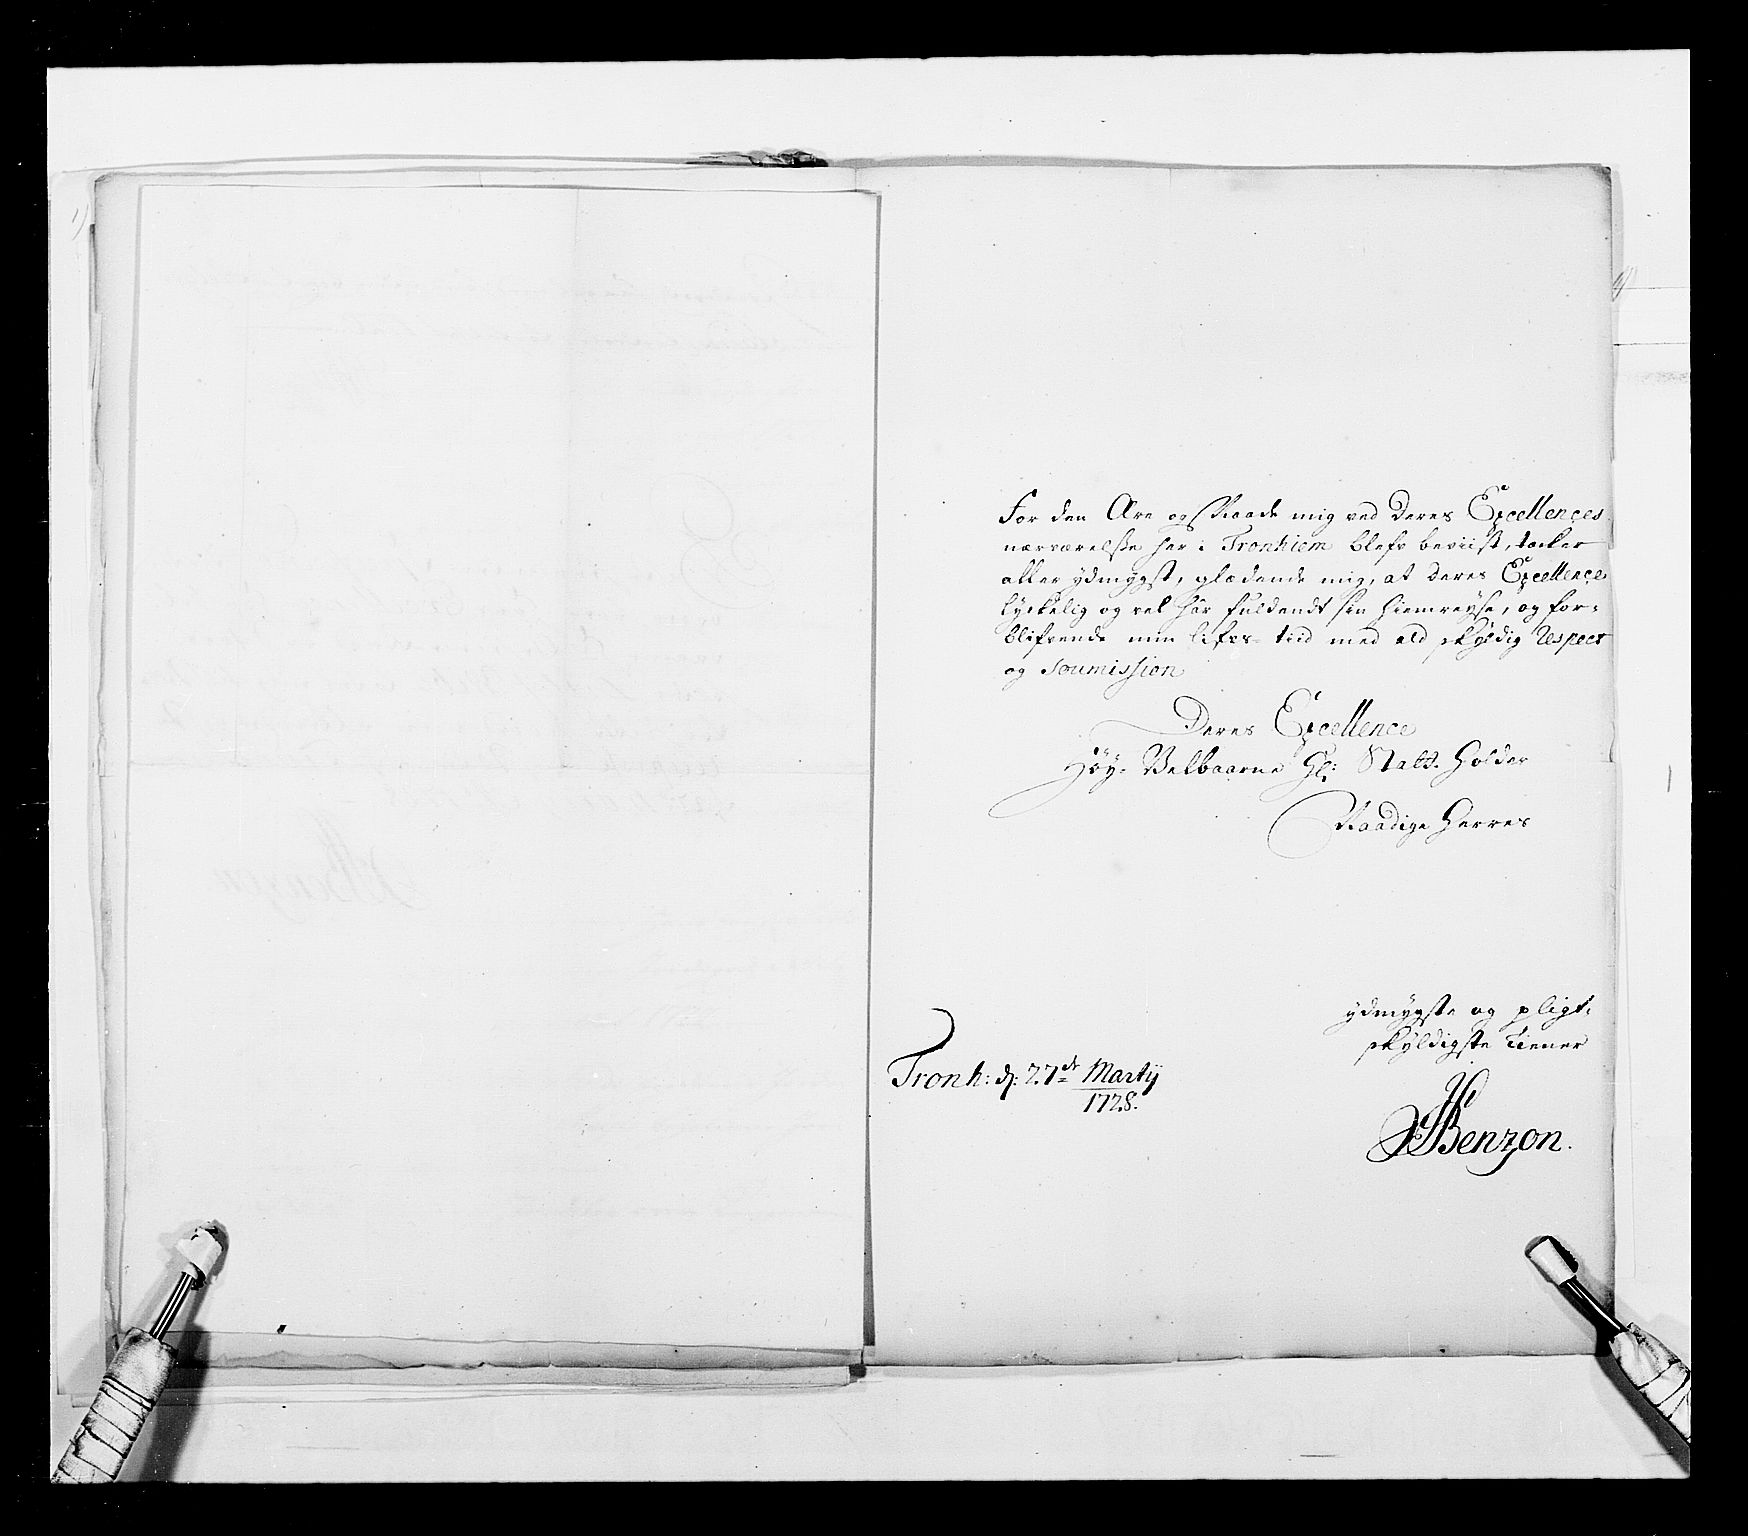 For den Ære og Naade mig ved Deres Excellences
nærværelsse her i Tronhiem blefv beviist, tacker
aller ydmygst, glædende mig, at Deres Excellence
lyckelig og vel har fuldendt sin hiemreyse, og for-
blifvende min lifvs-tiid med ald skyldig respect
og soumission
Deres Excellence
Høy-Velbaarne Hr: Statt-Holder
Naadige Herres
ydmygste og pligt-
skyldigste tiener
Tronh: d: 27de Marty
1728.
Benzon.